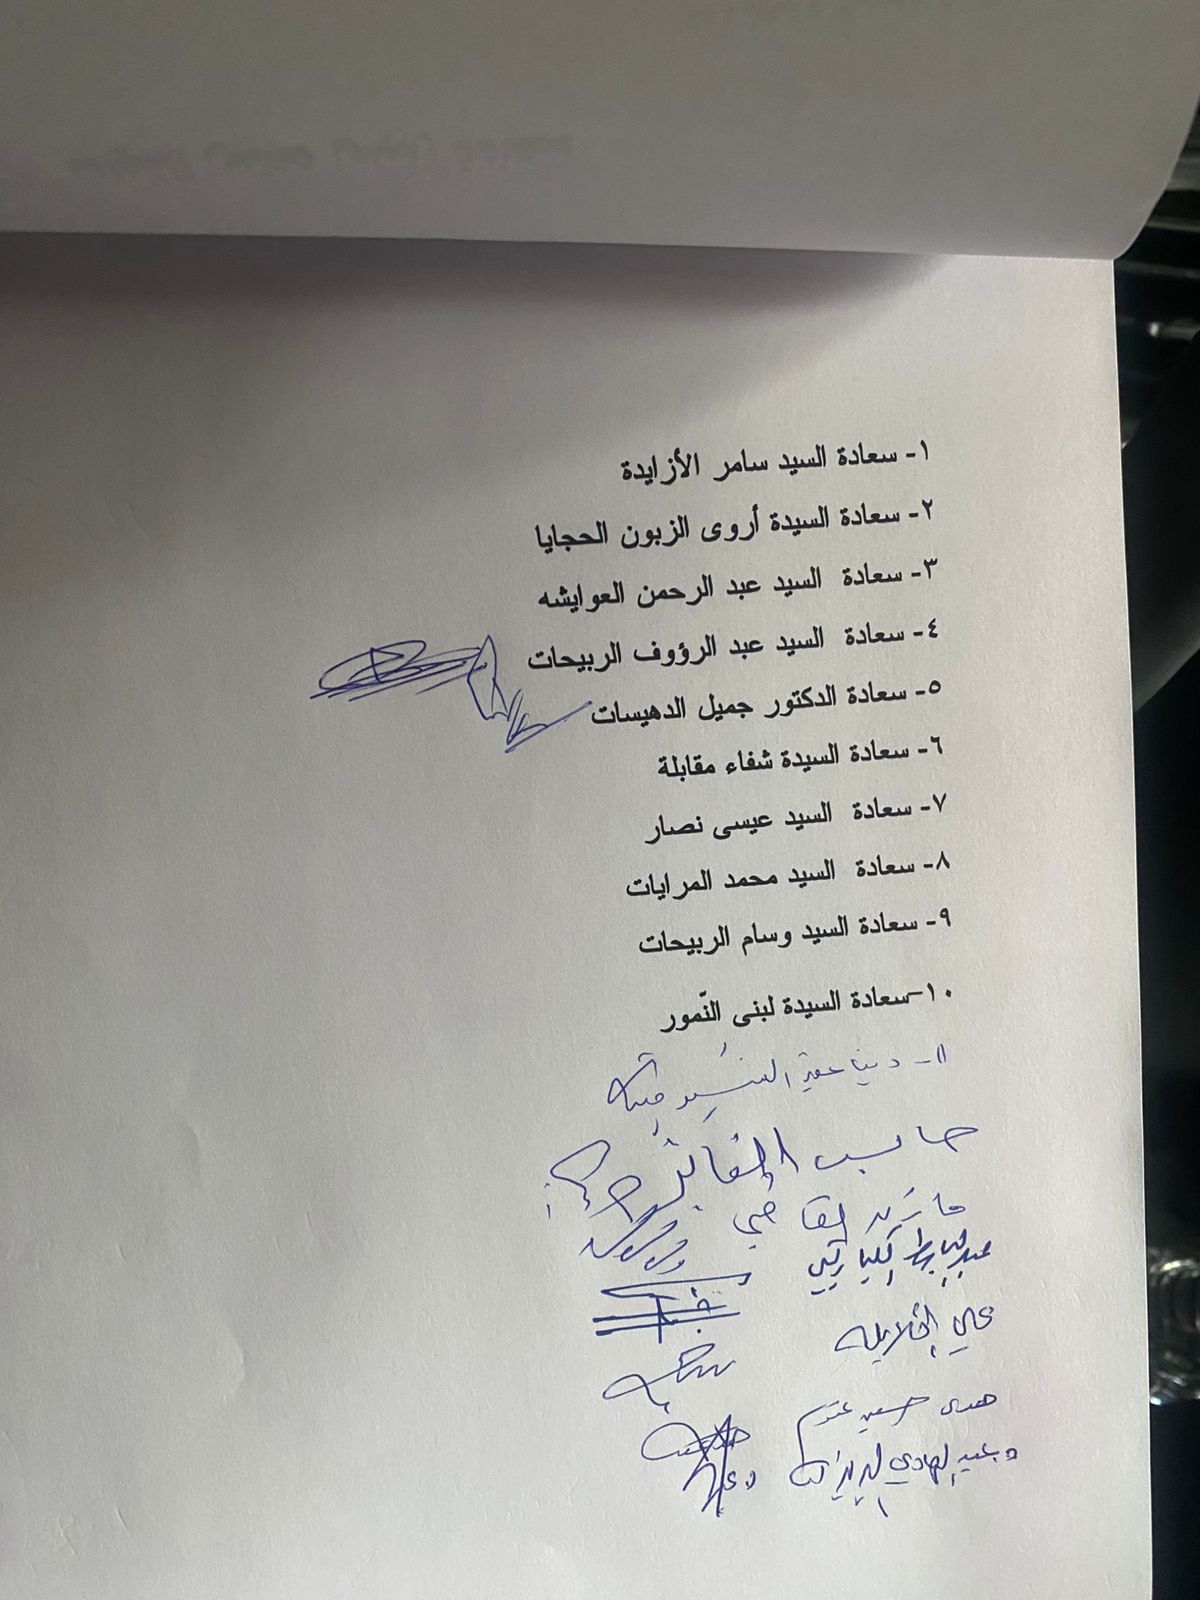 ١- سعادة السيد سامر الأزايدة
٢- سعادة السيدة أروى الزبون الحجايا
٣- سعادة السيد عبد الرحمن العوايشه
٤- سعادة السيد عبد الرؤوف الربيحات
٥- سعادة الدكتور جميل الدهيسات
٦- سعادة السيدة شفاء مقابلة
٧- سعادة السيد عيسى نصار
٨- سعادة السيد محمد المرايات
٩- سعادة السيد وسام الربيحات
١٠- سعادة السيدة لبنى النّمور
١١- دينا
القاضي
عبدالباسط الكباريتي
علي الخلايله
هدى حسين عتوم
عبدالهادي البريزات